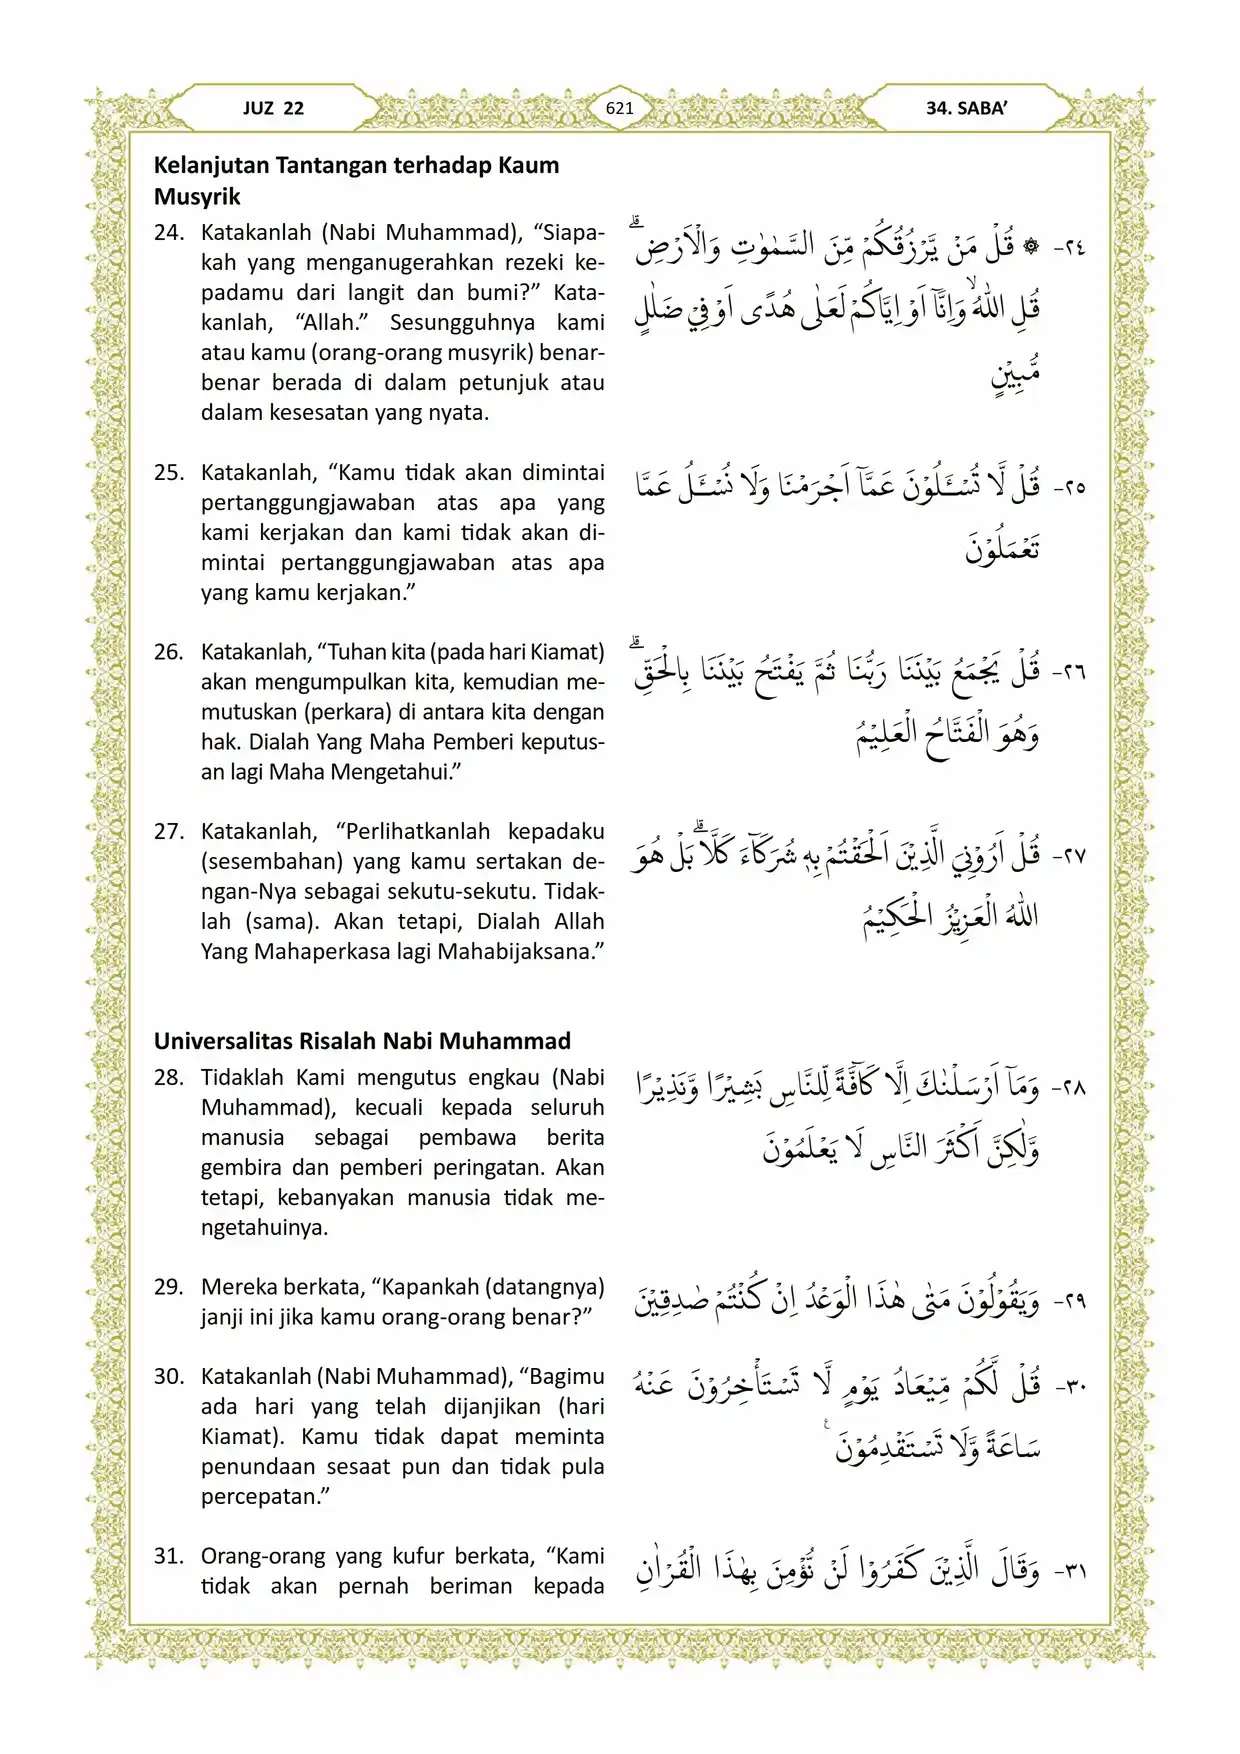 JUZ 22
621
34. SABA’
Kelanjutan Tantangan terhadap Kaum
Musyrik
24. Katakanlah (Nabi Muhammad), “Siapa-
kah yang menganugerahkan rezeki ke-
padamu dari langit dan bumi?” Kata-
kanlah, “Allah.” Sesungguhnya kami
atau kamu (orang-orang musyrik) benar-
benar berada di dalam petunjuk atau
dalam kesesatan yang nyata.
٢٤- ۞ قُلْ مَنْ يَّرْزُقُكُمْ مِّنَ السَّمٰوٰتِ وَالْاَرْضِۗ
قُلِ اللّٰهُ ۙوَاِنَّآ اَوْ اِيَّاكُمْ لَعَلٰى هُدًى اَوْ فِيْ ضَلٰلٍ
مُّبِيْنٍ
25. Katakanlah, “Kamu tidak akan dimintai
pertanggungjawaban atas apa yang
kami kerjakan dan kami tidak akan di-
mintai pertanggungjawaban atas apa
yang kamu kerjakan.”
٢٥- قُلْ لَّا تُسْـَٔلُوْنَ عَمَّآ اَجْرَمْنَا وَلَا نُسْـَٔلُ عَمَّا
تَعْمَلُوْنَ
26. Katakanlah, “Tuhan kita (pada hari Kiamat)
akan mengumpulkan kita, kemudian me-
mutuskan (perkara) di antara kita dengan
hak. Dialah Yang Maha Pemberi keputus-
an lagi Maha Mengetahui.”
٢٦- قُلْ يَجْمَعُ بَيْنَنَا رَبُّنَا ثُمَّ يَفْتَحُ بَيْنَنَا بِالْحَقِّۗ
وَهُوَ الْفَتَّاحُ الْعَلِيْمُ
27. Katakanlah, “Perlihatkanlah kepadaku
(sesembahan) yang kamu sertakan de-
ngan-Nya sebagai sekutu-sekutu. Tidak-
lah (sama). Akan tetapi, Dialah Allah
Yang Mahaperkasa lagi Mahabijaksana.”
٢٧- قُلْ اَرُوْنِيَ الَّذِيْنَ اَلْحَقْتُمْ بِهٖ شُرَكَاۤءَ كَلَّا ۗبَلْ هُوَ
اللّٰهُ الْعَزِيْزُ الْحَكِيْمُ
Universalitas Risalah Nabi Muhammad
28. Tidaklah Kami mengutus engkau (Nabi
Muhammad), kecuali kepada seluruh
manusia sebagai pembawa berita
gembira dan pemberi peringatan. Akan
tetapi, kebanyakan manusia tidak me-
ngetahuinya.
٢٨- وَمَآ اَرْسَلْنٰكَ اِلَّا كَاۤفَّةً لِّلنَّاسِ بَشِيْرًا وَّنَذِيْرًا
وَّلٰكِنَّ اَكْثَرَ النَّاسِ لَا يَعْلَمُوْنَ
29. Mereka berkata, “Kapankah (datangnya)
janji ini jika kamu orang-orang benar?”
٢٩- وَيَقُوْلُوْنَ مَتٰى هٰذَا الْوَعْدُ اِنْ كُنْتُمْ صٰدِقِيْنَ
30. Katakanlah (Nabi Muhammad), “Bagimu
ada hari yang telah dijanjikan (hari
Kiamat). Kamu tidak dapat meminta
penundaan sesaat pun dan tidak pula
percepatan.”
٣٠- قُلْ لَّكُمْ مِّيْعَادُ يَوْمٍ لَّا تَسْتَأْخِرُوْنَ عَنْهُ
سَاعَةً وَّلَا تَسْتَقْدِمُوْنَ ࣖ
31. Orang-orang yang kufur berkata, “Kami
tidak akan pernah beriman kepada
٣١- وَقَالَ الَّذِيْنَ كَفَرُوْا لَنْ نُّؤْمِنَ بِهٰذَا الْقُرْاٰنِ